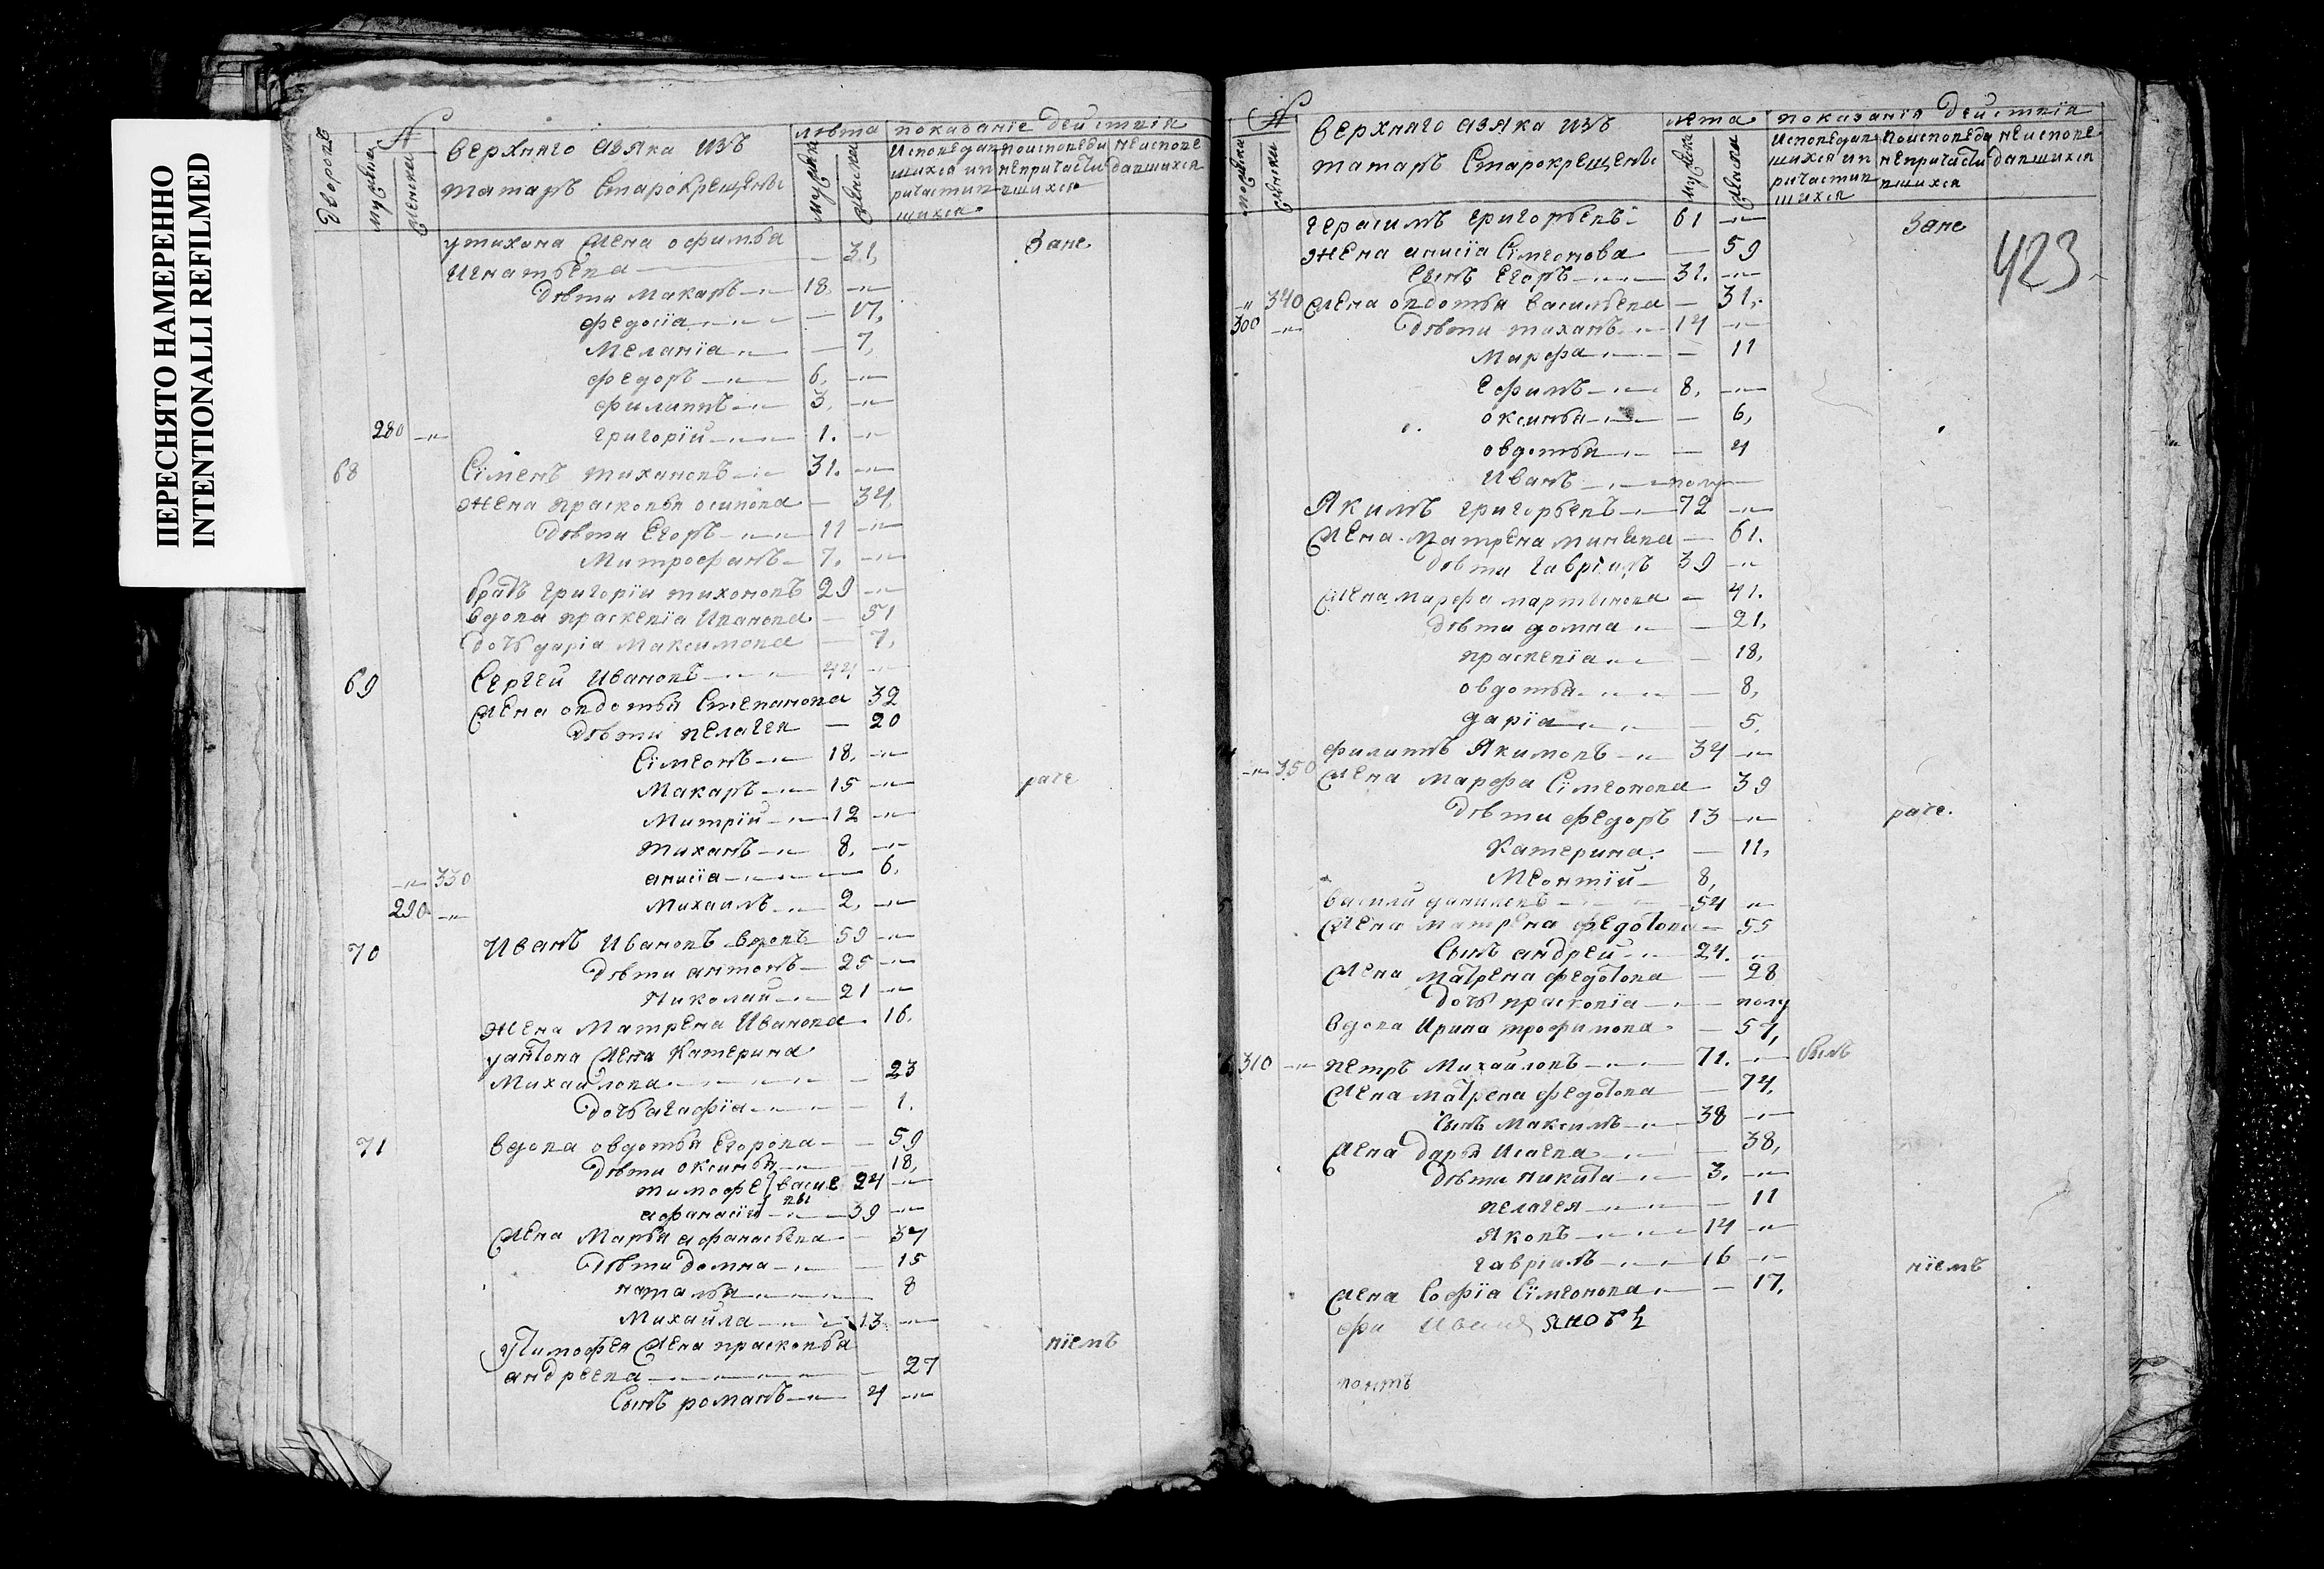 ПЕРЕСНЯТО НАМЕРЕННО
INTENTIONALLI REFILMED
дворовъ
№
мужеска
женска
верхняго авзяка изъ
татаръ Старокрещенъ
лѣта
мужеска
женска
показаніе действія
Исповедав
шихся ип
ричастив
шихся
поисповеди
непричасти
вшихся
неиспове
давшихся
утихона жена офимья 31
Игнатьева Зане
дѣти Макаръ 18
федосіа 17
Меланіа 7
федоръ 6
филиппъ 3
280 григорїи 1
68 Сїменъ тихановъ 31
жена прасковья осипова 34
дѣти Егоръ 11
Митрофанъ 7
братъ григорїи тихоновъ 29
вдова праскевїа Иванова 51
дочь дарїа Максимова 7
69 Сергей Ивановъ 44
жена овдотья Степанова 32
дѣти пелагея 20
Сїмеонъ 18
Макаръ 15 раче
Митрїи 12
тиханъ 8
330 анисїа 6
290 Михаилъ 2
70 Иванъ Ивановъ вдовъ 59
дѣти антонъ 25
Николаи 21
жена Матрена Иванова 16
уантона жена Катерина
Михаилова 23
дочь агафїа 1
71 вдова овдотья Егорова 59
дѣти оксинья 18
тимофе васие 24
вы
афанасїи 39
жена Марья афанасьева 37
дѣти домна 15
наталья 8
Михаила 13
Тимофея жена прасковья нїемъ
андреева 27
Сынъ романъ 4
№
мужеска
женска
верхняго авзяка изъ
татаръ Старокрещенъ
лета
мужеска
женска
показанїя действїя
Исповедав
шихся ип
ричастив
шихся
поисповеди
непричасти
вшихся
неиспове
давшихся
423
герасимъ григорьевъ 61 Зане
жена анисїа Сїмеонова 59
Сынъ Егоръ 31
340 жена овдотья васильева 31
300 дѣти тиханъ 14
Марфа 11
Ефимъ 8
оксинья 6
овдотья 4
Иванъ полу
Якимъ григорьевъ 72
жена Матрена минаева 61
дѣти гаврїилъ 39
жена марфа мартынова 41
дѣти домна 21
праскевїа 18
овдотья 8
дарїа 5
филиппъ Якимовъ 34
350 жена Марфа Сїмеонова 39
дѣти федоръ 13 раче
Катерина 11
Леонтїи 8
василїи данилевъ 54
жена матрена федотова 55
Сынъ андреи 24
жена матрена федотова 28
дочь прасковїа полу
вдова Ирина трофимова 57
310 петръ Михаиловъ 71 былъ
жена матрена федотова 74
Сынъ Максимъ 38
жена дарья Исаева 38
дѣти никита 3
пелагея 11
Яковъ 14
гаврїилъ 16 нїемъ
жена Софїа Сїмеонова 17